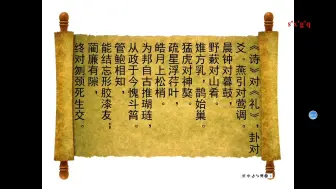 《诗》对《礼》，卦对
爻。燕引对莺调。
晨钟对暮鼓，
野蔌对山肴。
雉方乳，鹊始巢。
猛虎对神獒。
疏星浮荇叶，
皓月上松梢。
为邦自古推瑚琏，
从政于今愧斗筲。
管鲍相知，
能结忘形胶漆友；
蔺廉有隙，
终对刎颈死生交。